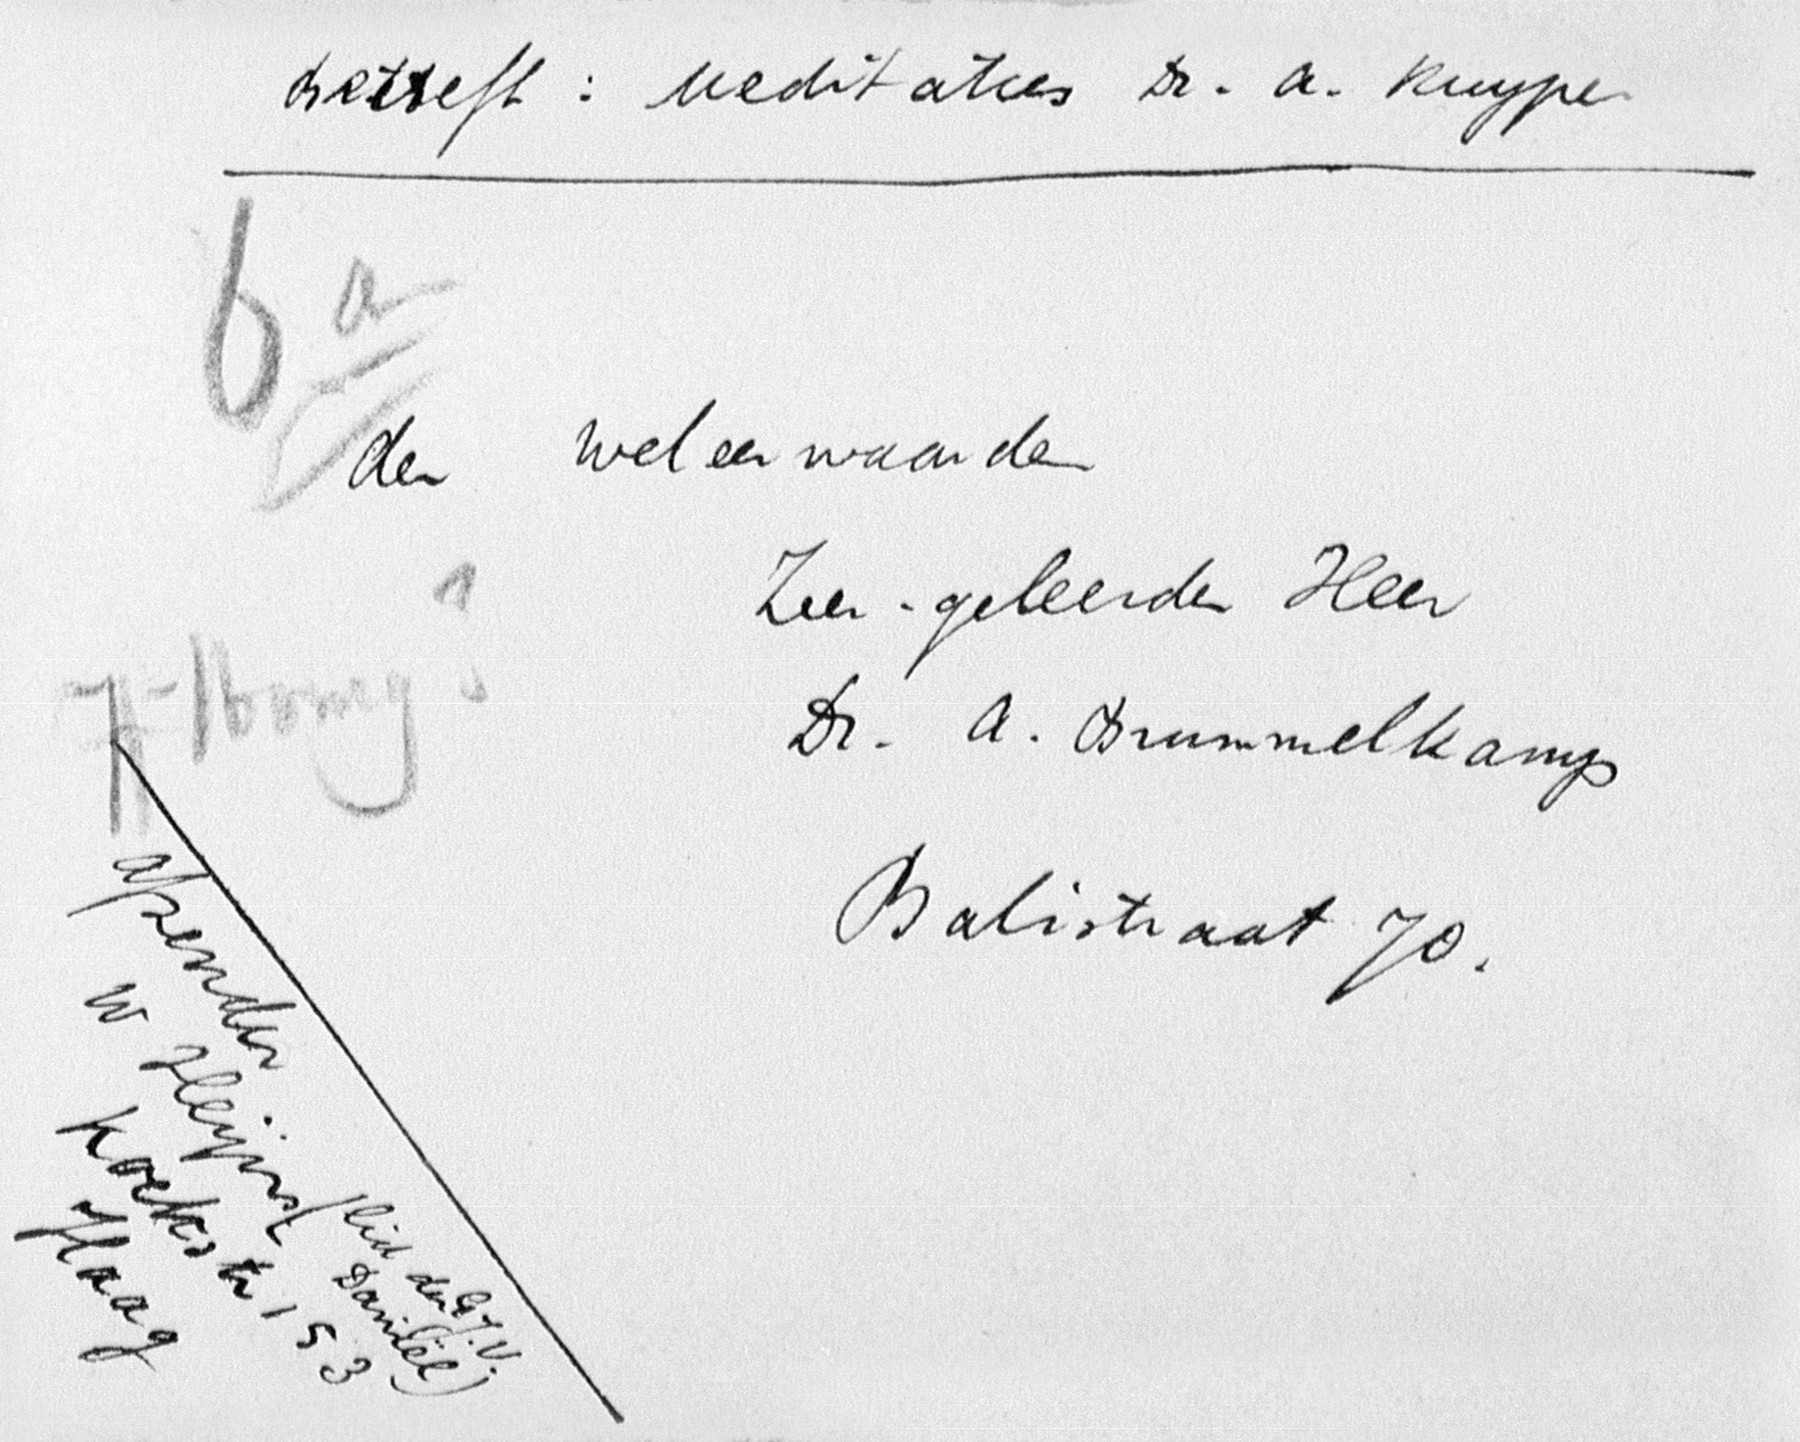 betreft : Meditaties Dr. A. Kuyper
6 a
den weleerwaarden
Zeer-geleerden Heer
Dr. A. Brummelkamp
Balistraat 70.
afzender
W Heijnst (lid der G.J.V.
Daniël)
Koekstr 153
Haag